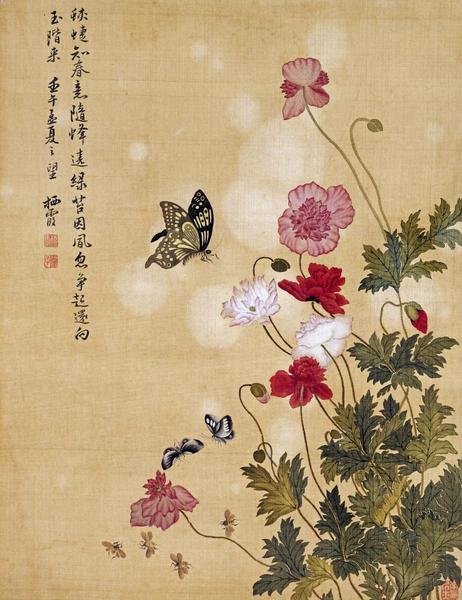 蛺蜨知春意隨蜂遶綠苔因風忽爭起還向
玉階来 壬午孟夏之望 栖霞